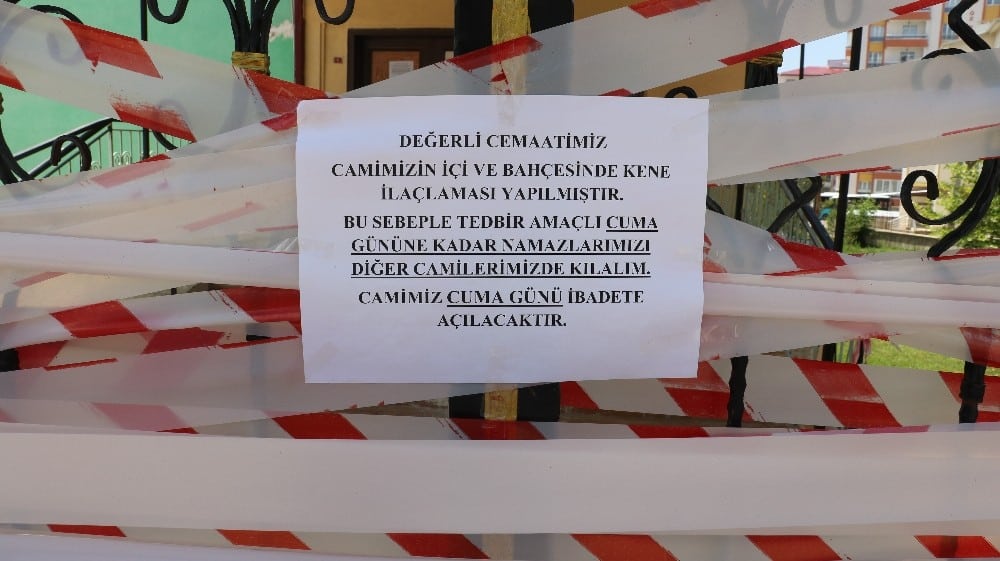 DEĞERLİ CEMAATİMİZ
CAMİMİZİN İÇİ VE BAHÇESİNDE KENE
İLAÇLAMASI YAPILMIŞTIR.
BU SEBEPLE TEDBİR AMAÇLI CUMA
GÜNÜNE KADAR NAMAZLARIMIZI
DİĞER CAMİLERİMİZDE KILALIM.
CAMİMİZ CUMA GÜNÜ İBADETE
AÇILACAKTIR.